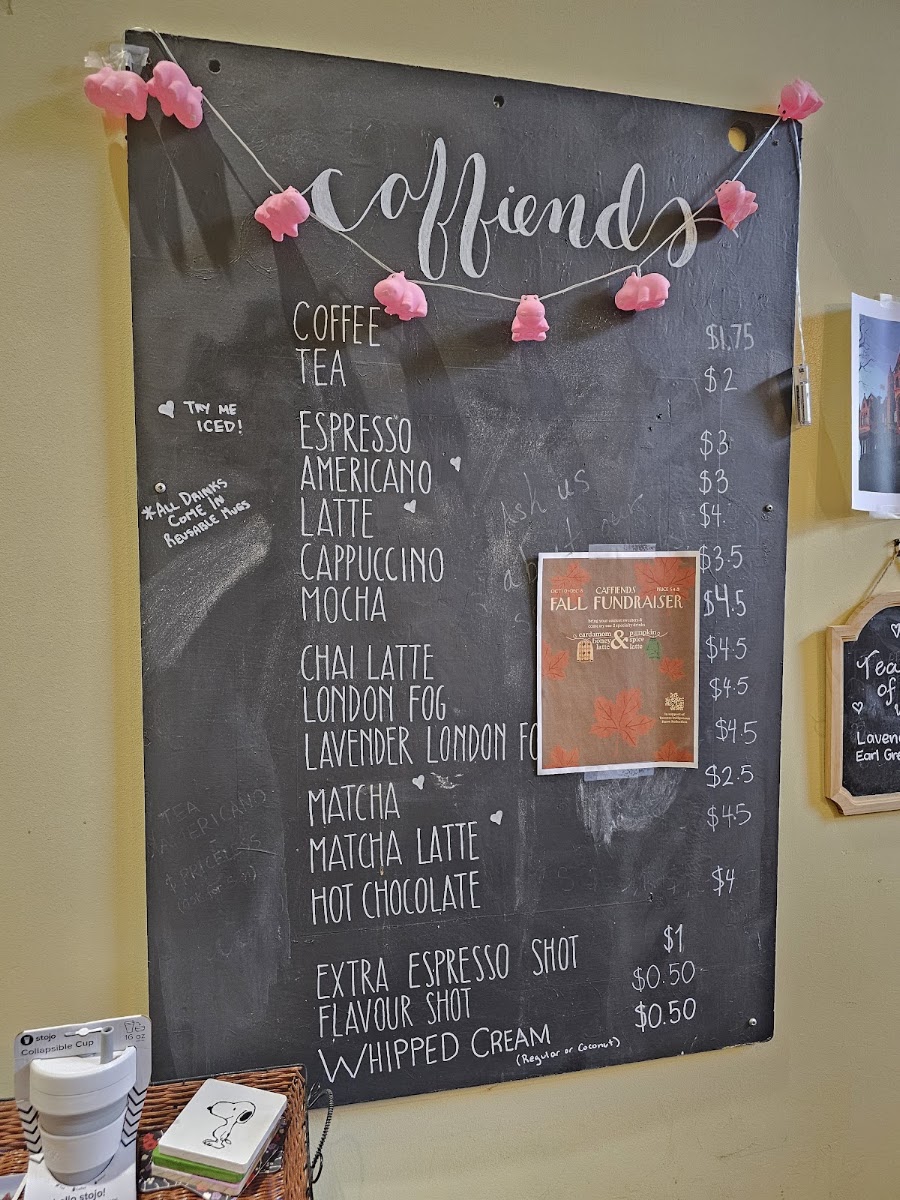 coffiends
COFFEE $1.75
TEA $2
TRY ME
ICED!
ESPRESSO $3
AMERICANO $3
LATTE $4
CAPPUCCINO $3.5
MOCHA $4.5
*ALL DRINKS
COME IN
REUSABLE MUGS
ask us
CHAI LATTE $4.5
LONDON FOG $4.5
LAVENDER LONDON FO $4.5
MATCHA $2.5
MATCHA LATTE $4.5
HOT CHOCOLATE $4
TEA
AMERICANO
EXTRA ESPRESSO SHOT $1
FLAVOUR SHOT $0.50
WHIPPED CREAM $0.50
(Regular or Coconut)
CAFFIENDS
FALL FUNDRAISER
cardamom
honey
latte
&
pumpkin
spice
latte
Tea
of
Laven
Earl Gre
stojo
Collapsible Cup
16 oz
hello stojo!